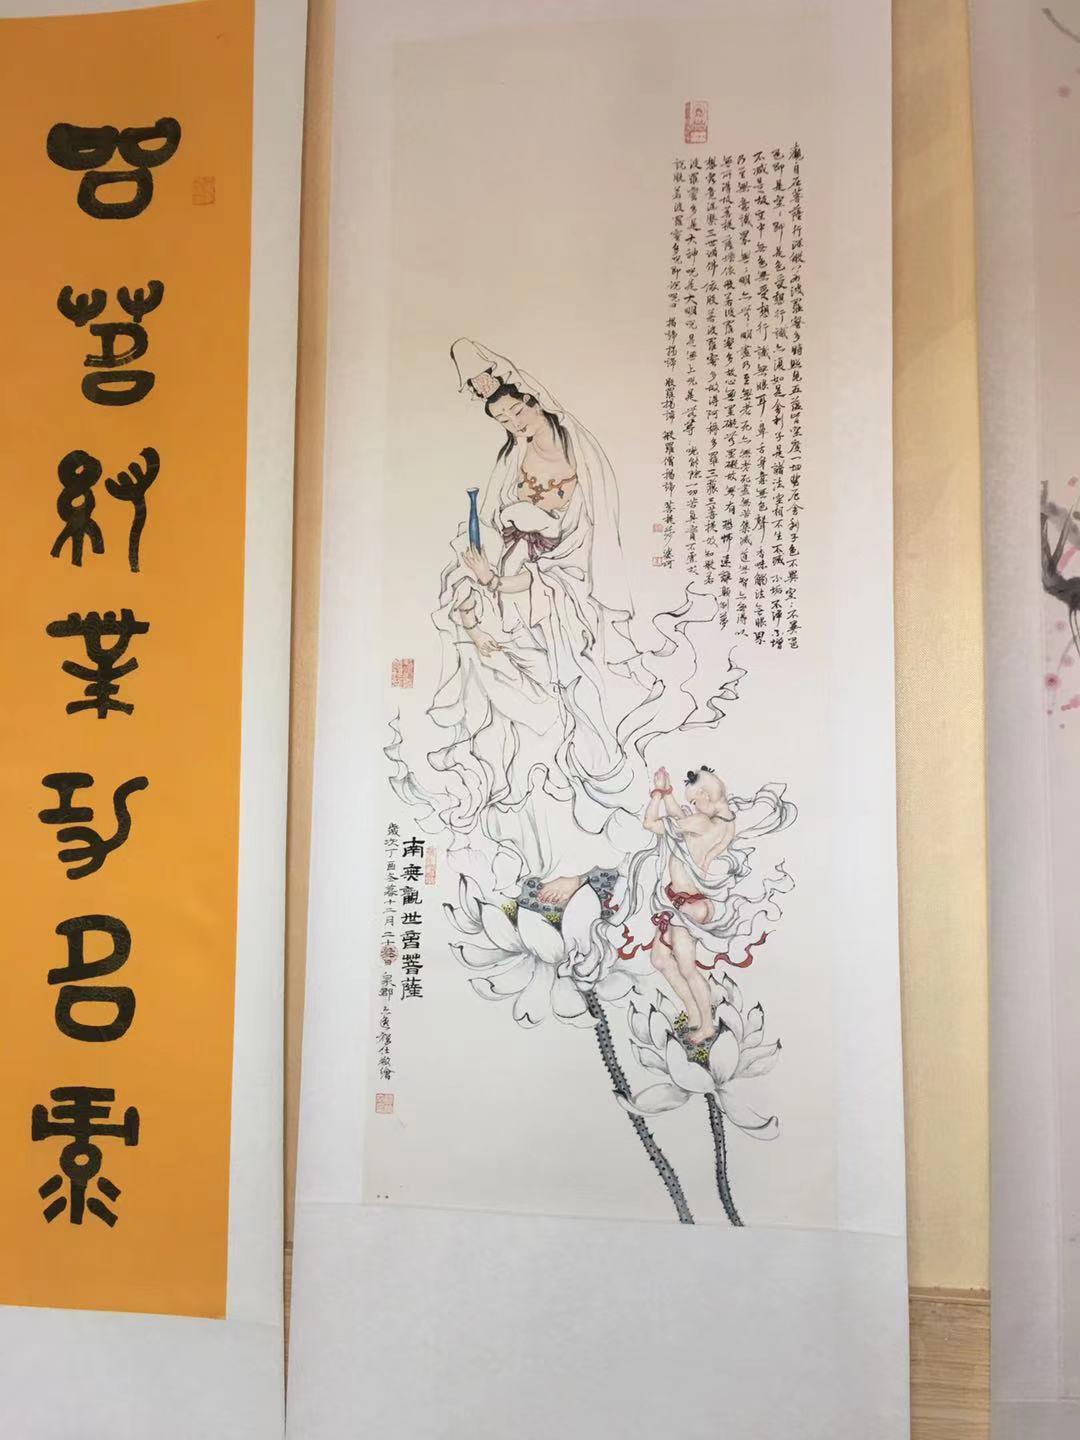 觀自在菩薩行深般若波羅蜜多時照見五蘊皆空度一切苦厄舍利子色不異空:不異色
色即是空:即是色受想行識亦復如是舍利子是諸法空相不生不滅不垢不淨不增
不減是故空中無色無受想行識無眼耳鼻舌身意無色聲香味觸法無眼界
乃至無意識界無:明亦無:明盡乃至無老死亦無老死盡無苦集滅道無智亦無得以
無所得故菩提薩埵依般若波羅蜜多故心無罣礙無罣礙故無有恐怖遠離顛倒夢
想究竟涅槃三世諸佛依般若波羅蜜多故得阿耨多羅三藐三菩提故知般若
波羅蜜多是大神咒是大明咒是無上咒是無等:咒能除一切苦真實不虛故
說般若波羅蜜多咒即說咒曰 揭諦揭諦 般羅揭諦 般羅僧揭諦 菩提莎婆訶
南無觀世音菩薩
歲次丁酉冬暮十二月二十日泉郡 仕敬繪
品茗 業 名